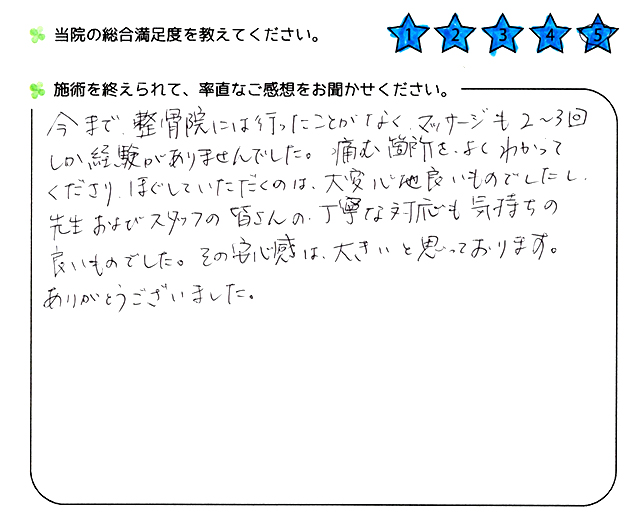 当院の総合満足度を教えてください。 1 2 3 4 5
施術を終えられて、率直なご感想をお聞かせください。
今まで、整骨院には行ったことがなく、マッサージも2〜3回
しか経験がありませんでした。痛む箇所を、よくわかって
くださり、ほぐしていただくのは、大変心地良いものでしたし、
先生およびスタッフの皆さんの、丁寧な対応も気持ちの
良いものでした。その安心感は、大きいと思っております。
ありがとうございました。